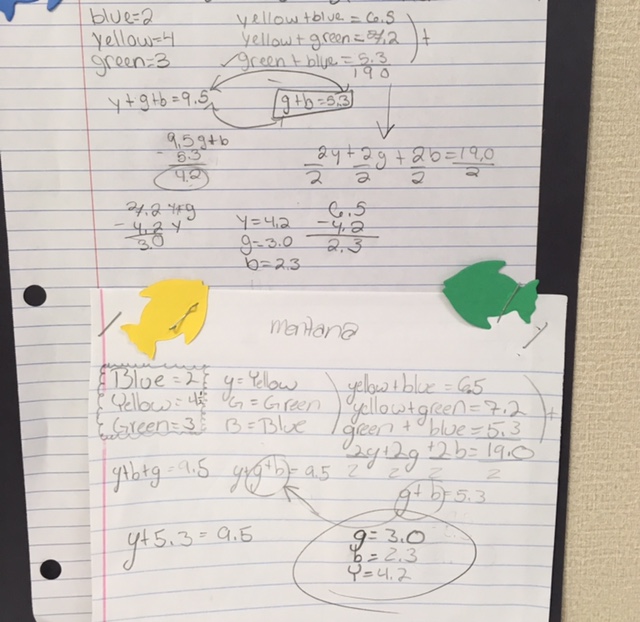 blue=2 yellow+blue=6.5
yellow=4 yellow+green=7.2
green=3 green+blue=5.3
19 0
y+g+b=9.5 g+b=5.3
9.5 g+b
- 5.3
4.2
2y+2g+2b=19.0
2 2 2 2
7.2 y+g
- 4.2 y
3.0
y=4.2
g=3.0
b=2.3
6.5
-4.2
2.3
Blue=2 y=Yellow yellow+blue=6.5
Yellow=4 G=Green yellow+green=7.2
Green=3 B=Blue green+blue=5.3
2y+2g+2b=19.0
2 2 2 2
y+b+g=9.5 y+g+b=9.5
g+b=5.3
y+5.3=9.5
g=3.0
b=2.3
Y=4.2